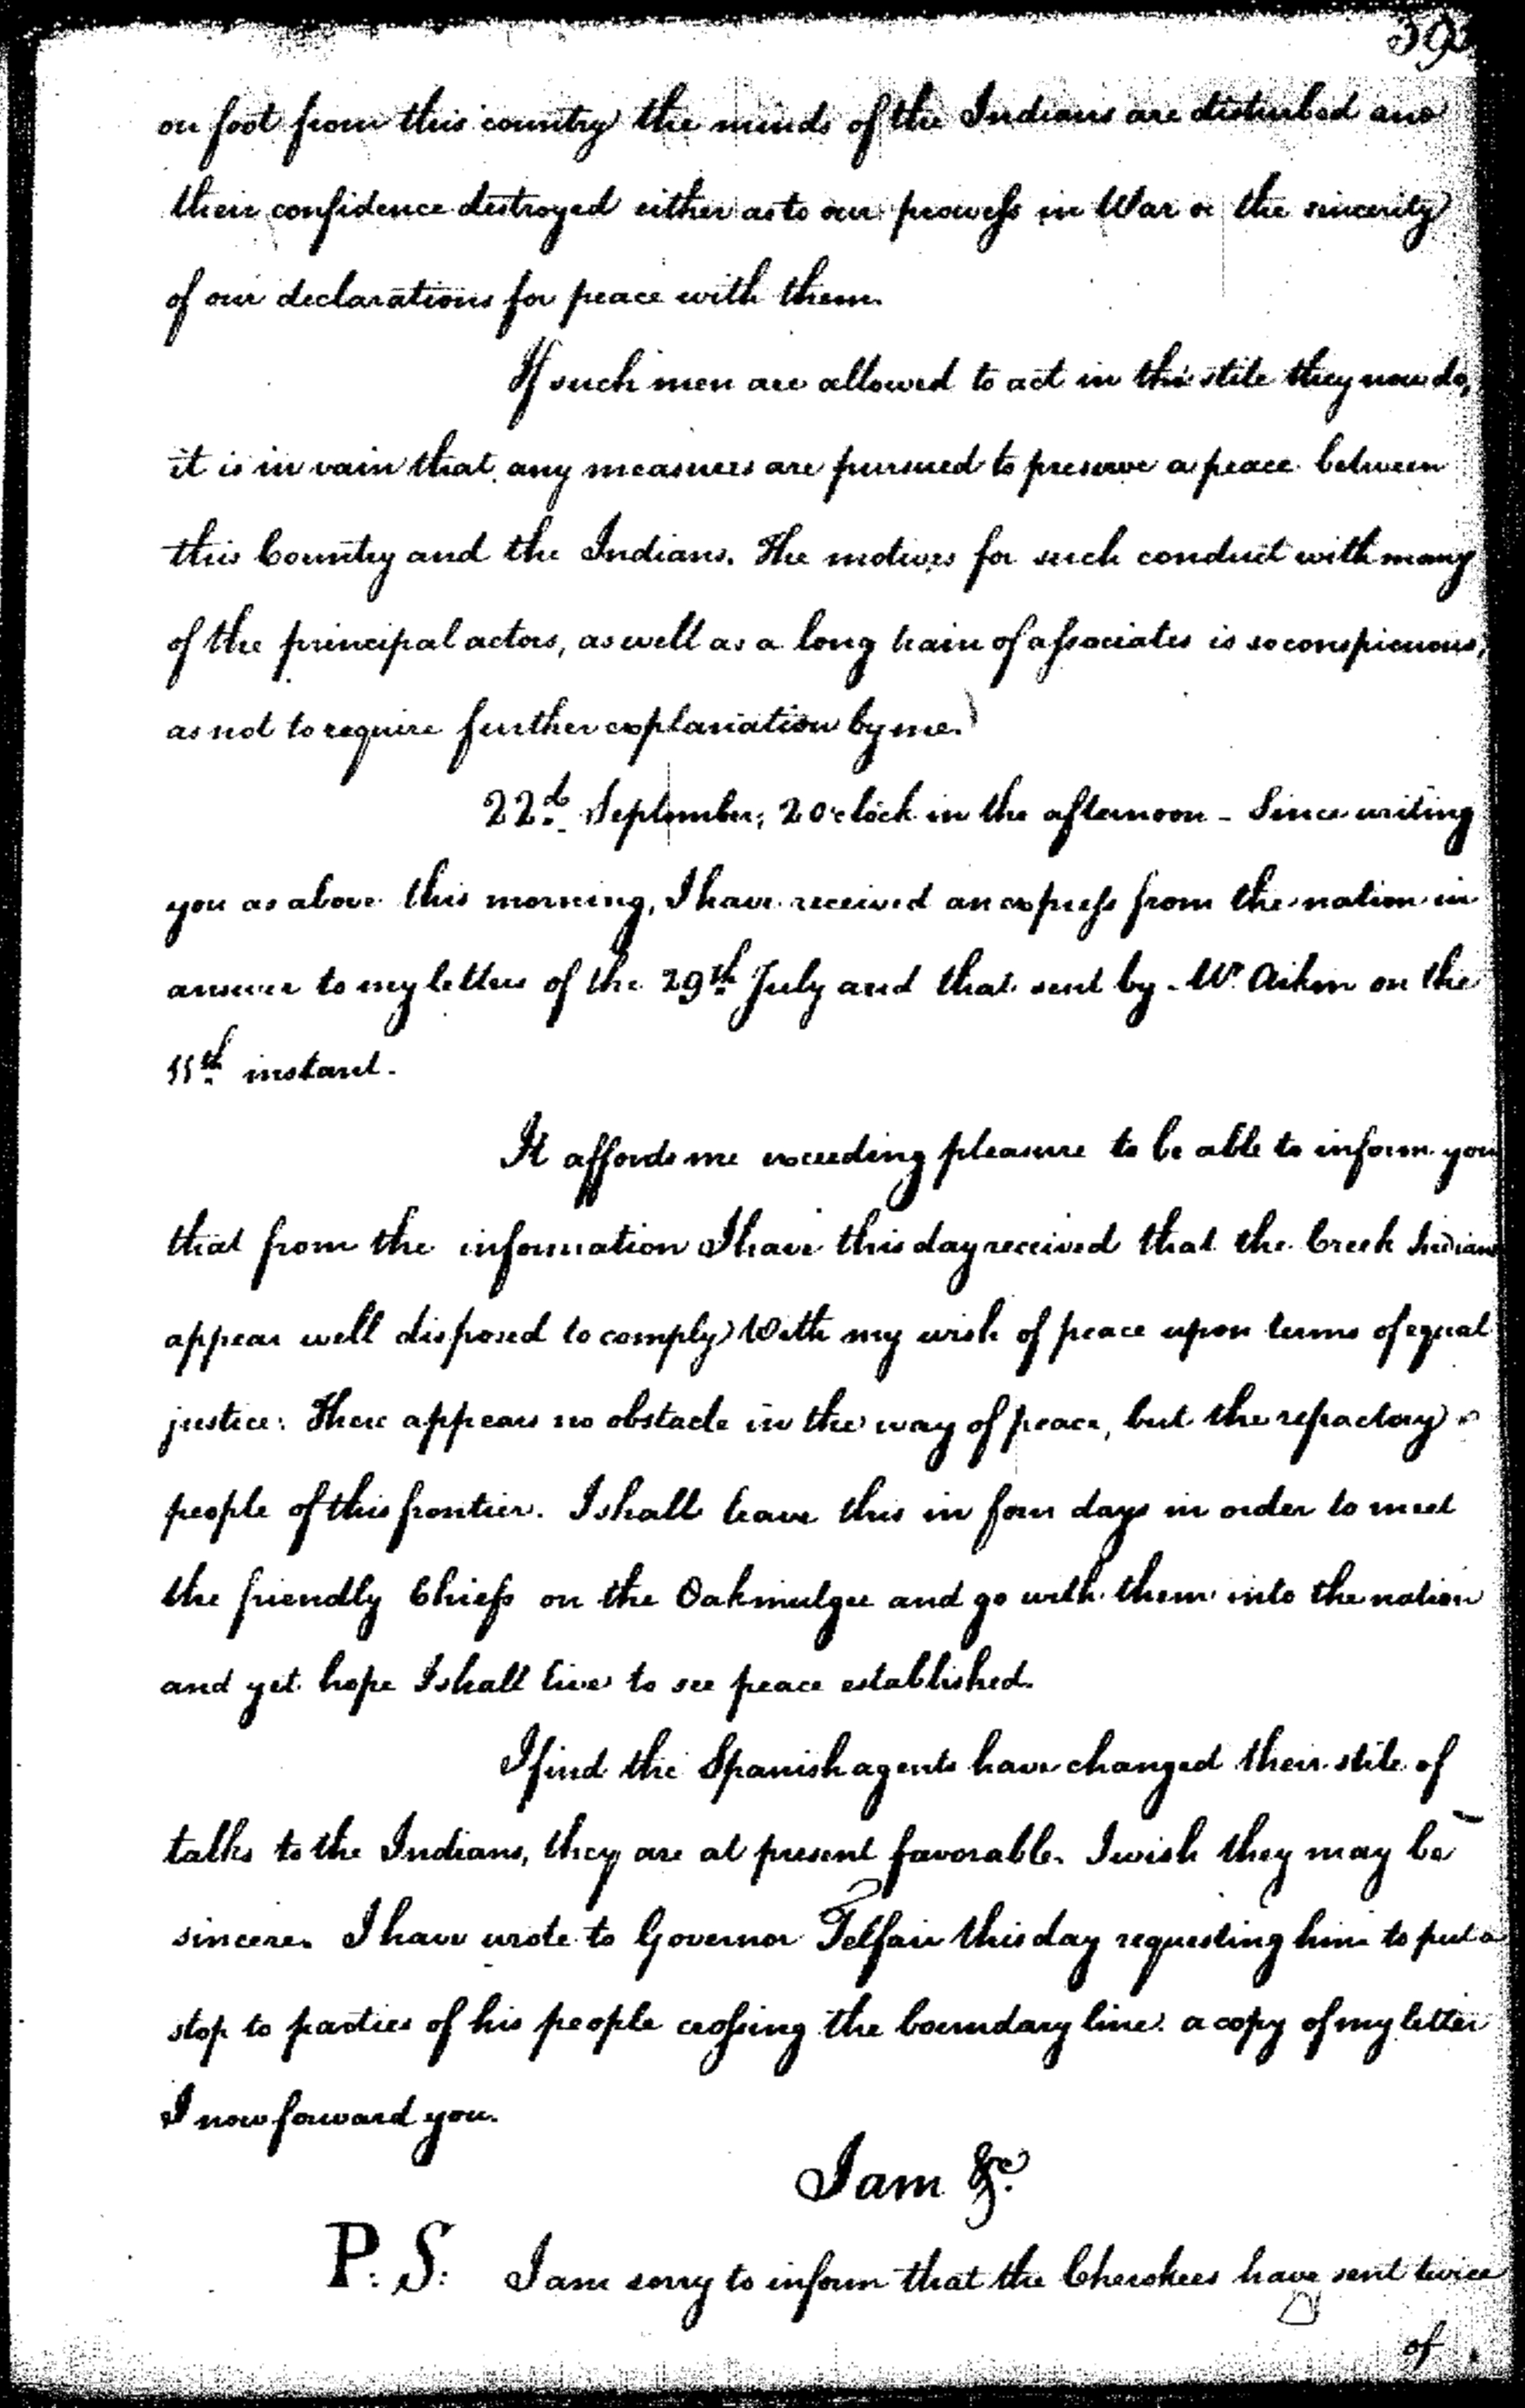 on foot from this country the minds of the Indians are disturbed and
their confidence destroyed either as to our prowess in War or the sincerity
of our declarations for peace with them.
If such men are allowed to act in the stile they now do,
it is in vain that any measures are pursued to preserve a peace between
this Country and the Indians. The motives for such conduct with many
of the principal actors, as well as a long train of associates is so conspicuous,
as not to require further explanation by me.
22d. September, 2 o'clock in the afternoon - Since writing
you as above this morning, I have received an express from the nation in
answer to my letters of the 29th July and that sent by Mr. Aiken on the
11th instant.
It affords me exceeding pleasure to be able to inform you
that from the information I have this day received that the Creek Indians
appear well disposed to comply With my wish of peace upon terms of equal
justice: There appears no obstacle in the way of peace, but the refractory
people of this frontier. I shall leave this in four days in order to meet
the friendly Chiefs on the Oakmulgee and go with them into the nation
and yet hope I shall live to see peace established.
I find the Spanish agents have changed their stile of
talks to the Indians, they are at present favorable. I wish they may be
sincere. I have wrote to Governor Telfair this day requesting him to put a
stop to parties of his people crossing the boundary line. a copy of my letter
I now forward you.
I am &c.
P.S. I am sorry to inform that the Cherokees have sent twice
of